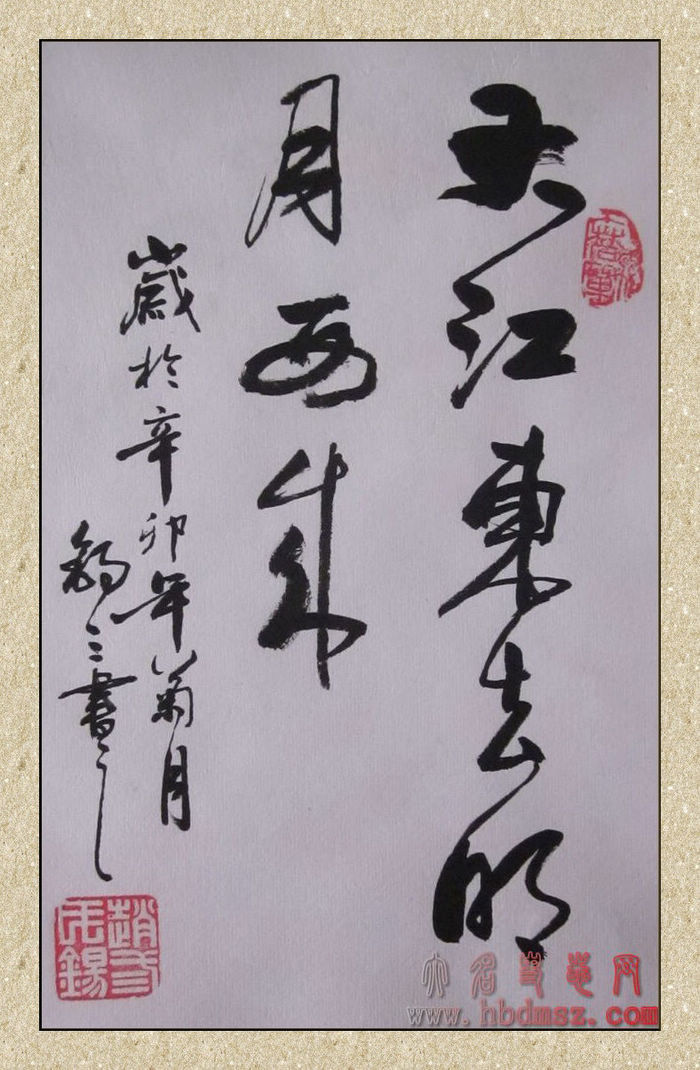 大江東去明
月西來
歲於辛卯年菊月
錫三書之
www.hbdmsz.com